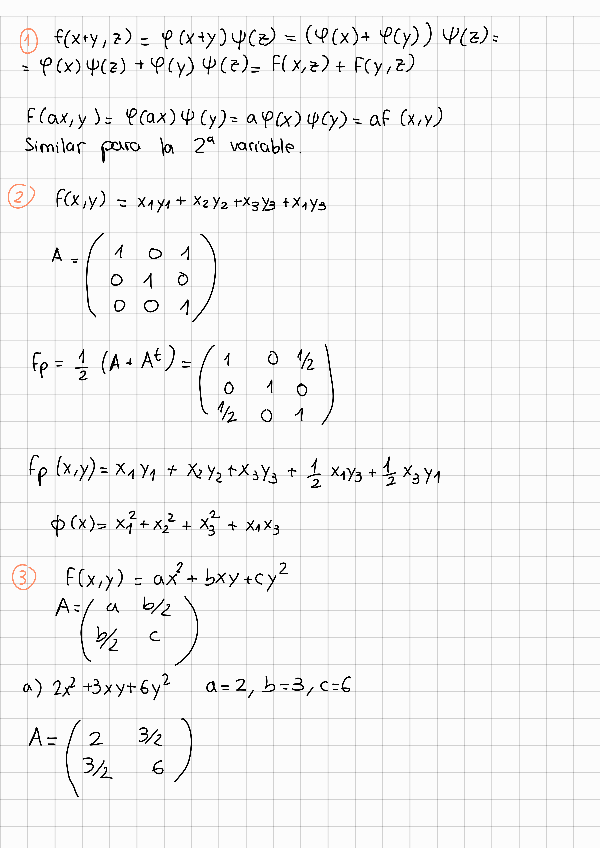 ① f(x+y, z) = φ(x+y)ψ(z) = (φ(x)+ φ(y)) ψ(z)=
= φ(x)ψ(z) + φ(y) ψ(z)= F(x,z) + F(y,z)
F(ax,y)= φ(ax)ψ(y)= aφ(x)ψ(y)= aF (x,y)
Similar para la 2ª variable.
② f(x,y) = x₁y₁ + x₂y₂ + x₃y₃ + x₁y₃
A = ( 1 0 1
0 1 0
0 0 1 )
Fp = 1/2 (A + Aᵗ) = ( 1 0 1/2
0 1 0
1/2 0 1 )
fp (x,y)= x₁y₁ + x₂y₂ + x₃y₃ + 1/2 x₁y₃ + 1/2 x₃y₁
ϕ(x)= x₁² + x₂² + x₃² + x₁x₃
③ F(x,y) = ax² + bxy + cy²
A = ( a b/2
b/2 c )
a) 2x² +3xy+6y² a=2, b=3, c=6
A = ( 2 3/2
3/2 6 )